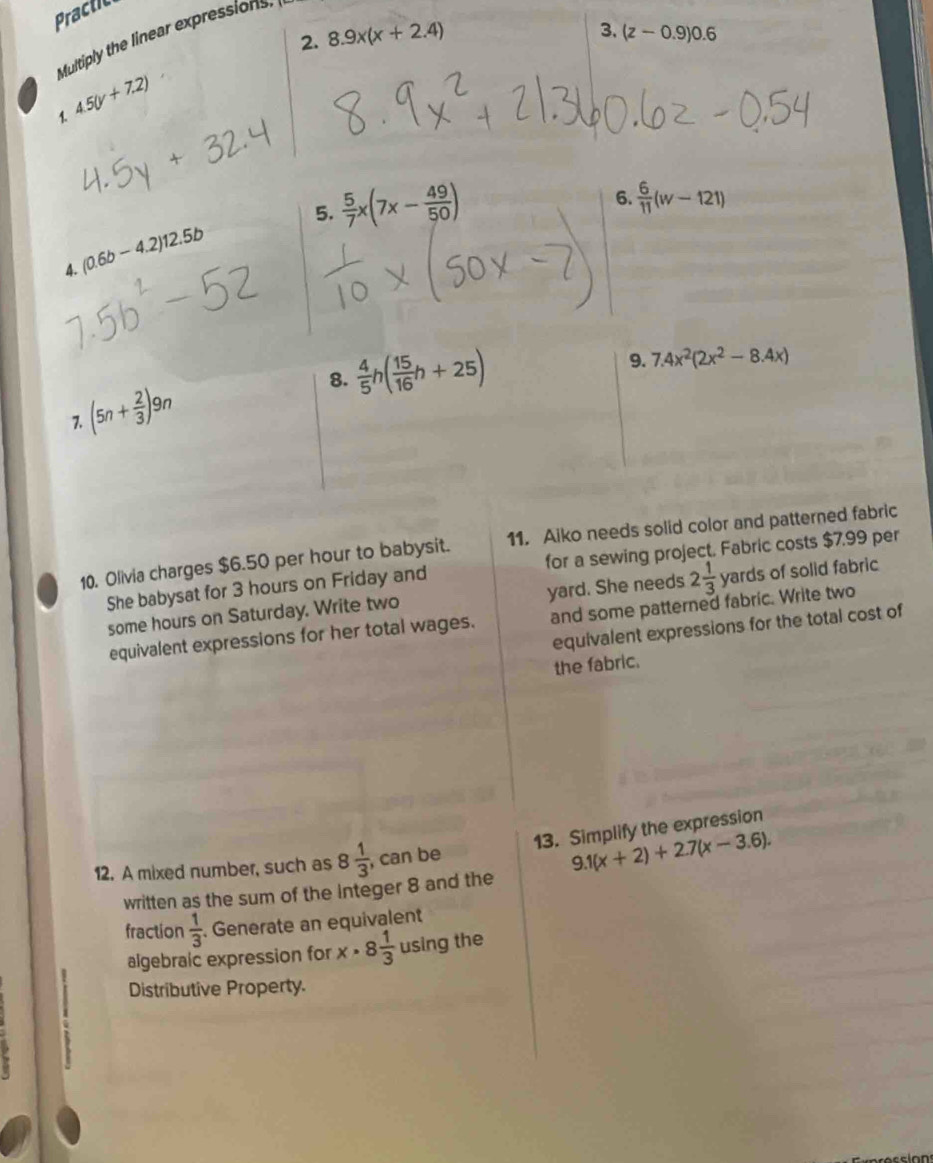 Multiply the linear expressions.
1. 4.5(y + 7.2)
2. 8.9x(x + 2.4)
3. (z − 0.9)0.6
4.5y + 32.4
8.9x² + 21.36
0.6z − 0.54
4. (0.6b − 4.2)12.5b
5. 5/7 x(7x − 49/50)
6. 6/11 (w − 121)
7.5b² − 52
1/10 x (50x − 7)
7. (5n + 2/3)9n
8. 4/5 h(15/16 h + 25)
9. 7.4x²(2x² − 8.4x)
10. Olivia charges $6.50 per hour to babysit.
She babysat for 3 hours on Friday and
some hours on Saturday. Write two
equivalent expressions for her total wages.
11. Aiko needs solid color and patterned fabric
for a sewing project. Fabric costs $7.99 per
yard. She needs 2 1/3 yards of solid fabric
and some patterned fabric. Write two
equivalent expressions for the total cost of
the fabric.
12. A mixed number, such as 8 1/3, can be
written as the sum of the integer 8 and the
fraction 1/3. Generate an equivalent
algebraic expression for x · 8 1/3 using the
Distributive Property.
13. Simplify the expression
9.1(x + 2) + 2.7(x − 3.6).